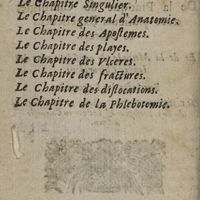 Le Chapitre Singulier.
Le Chapitre general d'Anatomie.
Le Chapitre des Apostemes.
Le Chapitre des playes.
Le Chapitre des Vlceres.
Le Chapitre des fractures.
Le Chapitre des dislocations.
Le Chapitre de la Phlebotomie.